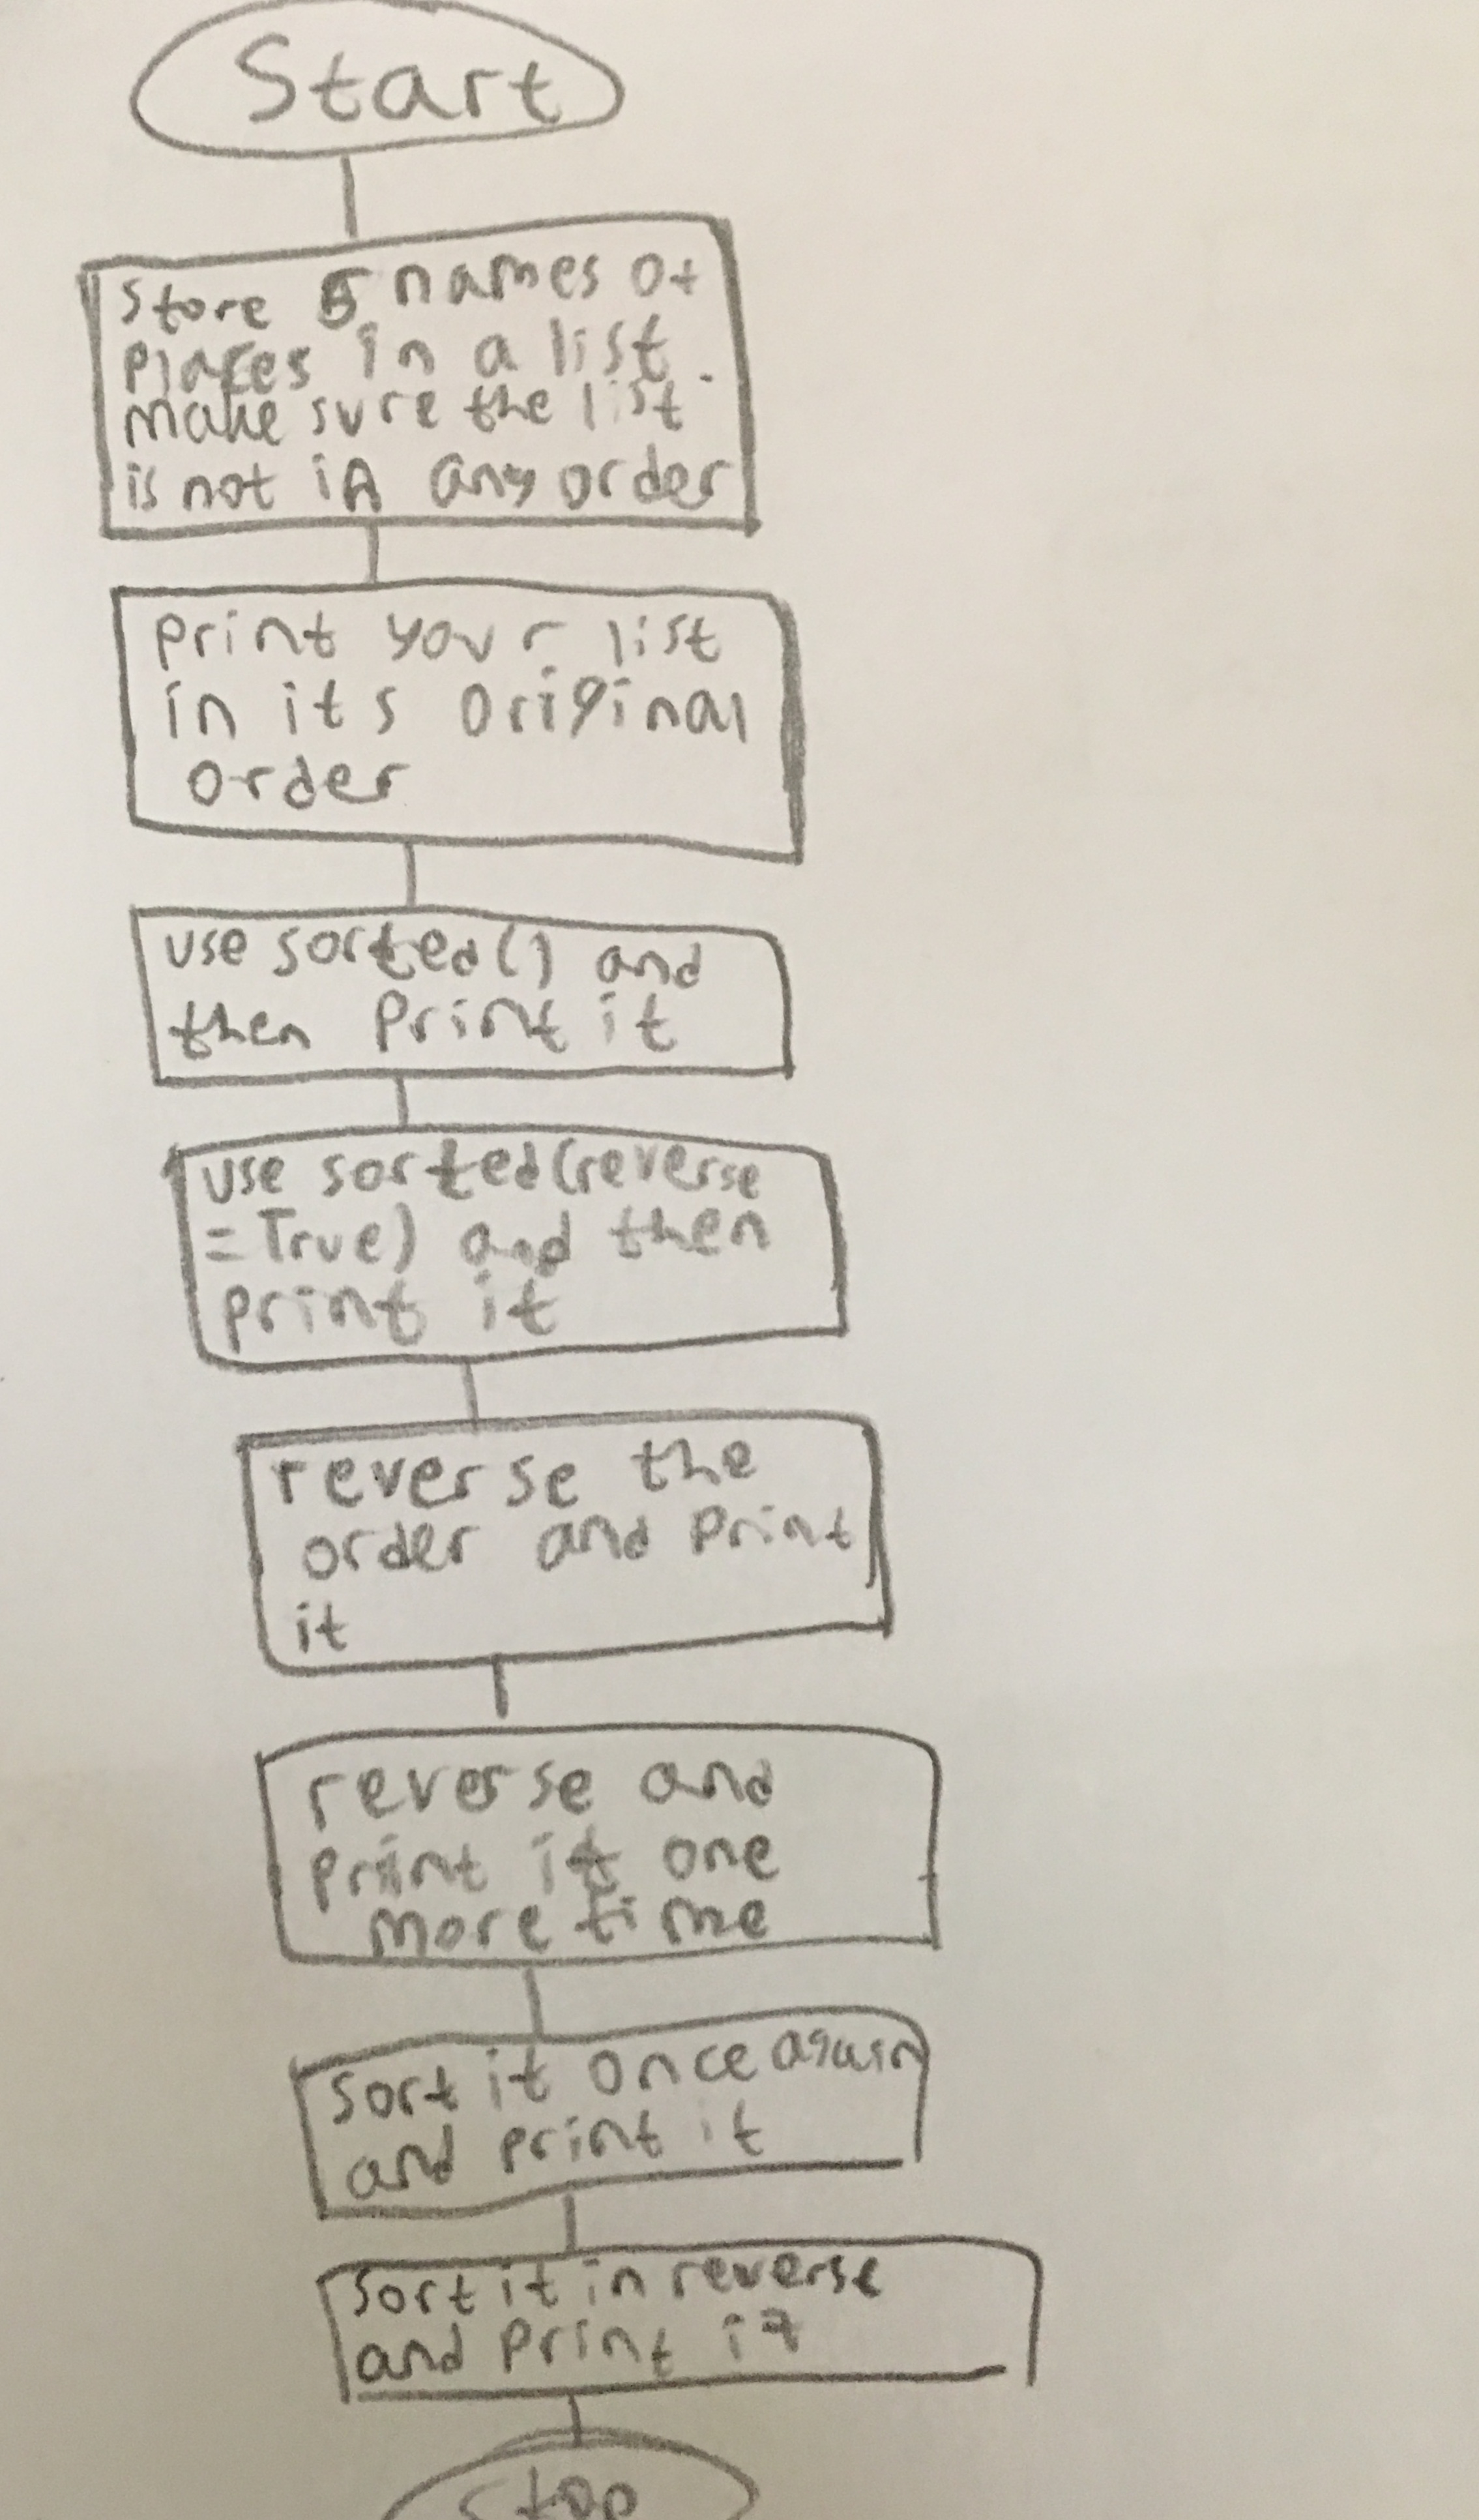 Start
Store 5 names of
places in a list.
make sure the list
is not in any order
print your list
in its original
order
use sorted() and
then Print it
use sorted(reverse
=True) and then
print it
reverse the
order and Print
it
reverse and
print it one
more time
Sort it once again
and print it
Sort it in reverse
and Print it
Stop